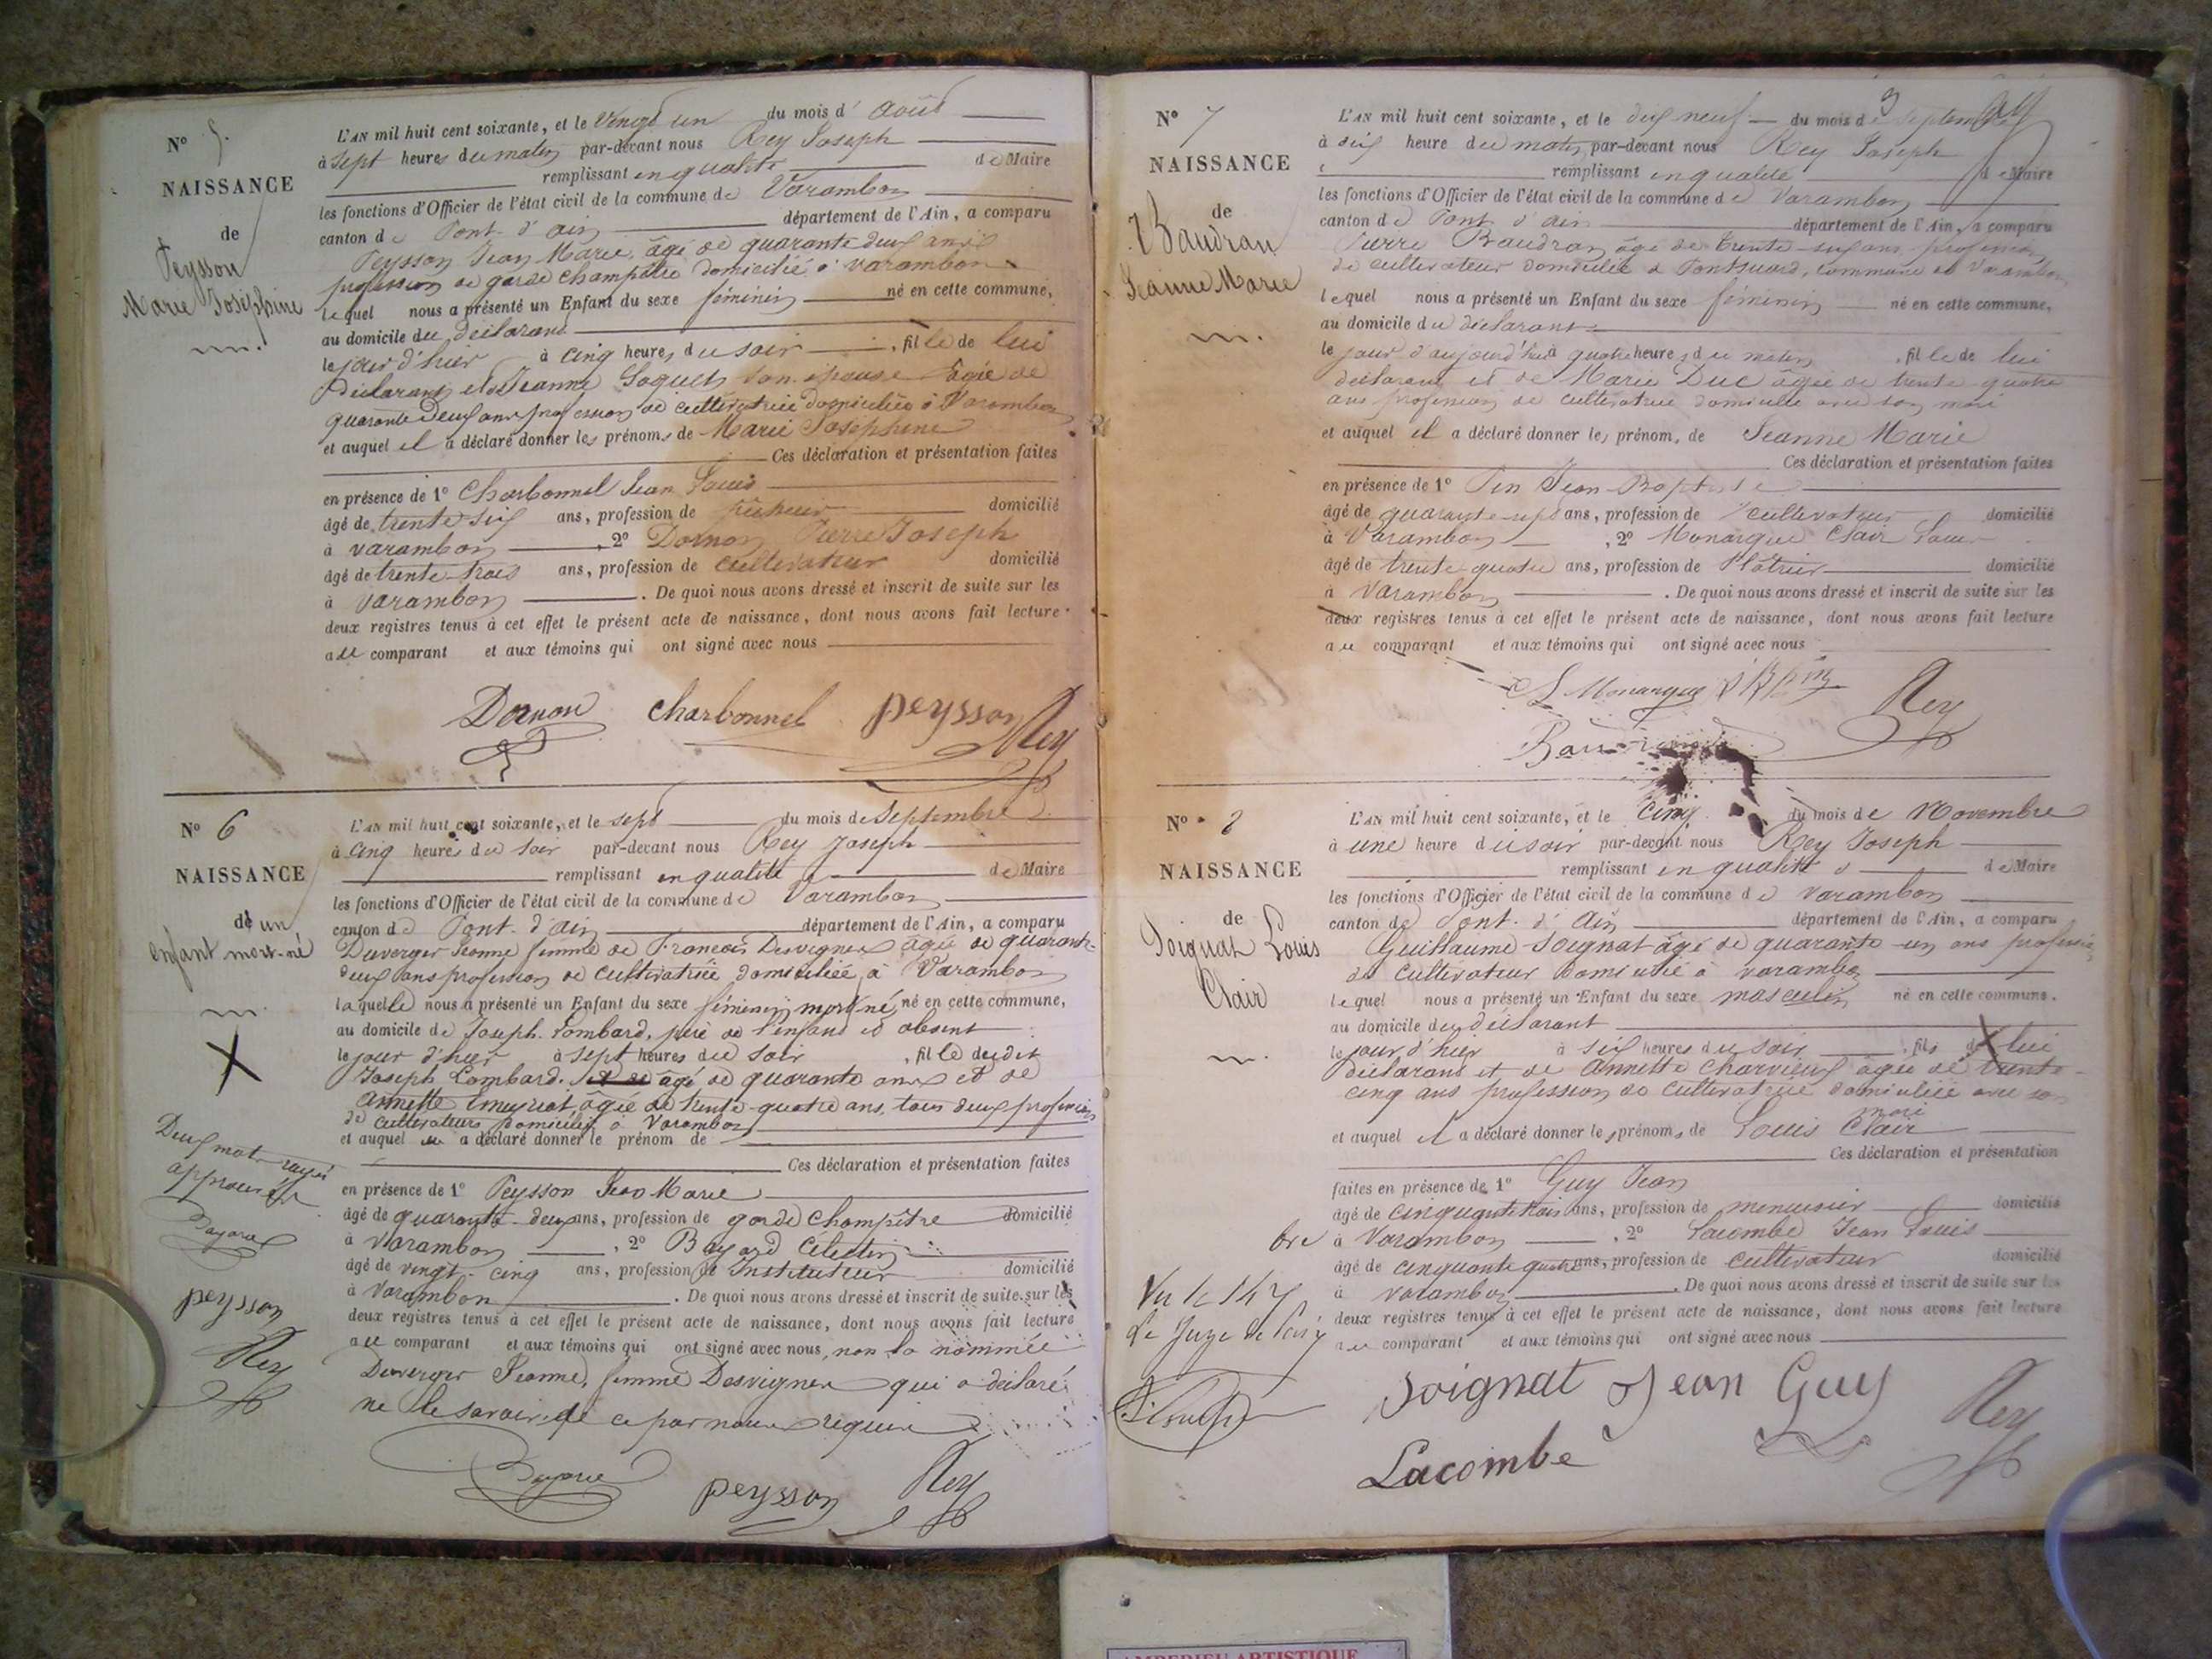 N° 5.
NAISSANCE
de
Peysson
Marie Joséphine
L'AN mil huit cent soixante, et le vingt un du mois d' août
à sept heures du matin par-devant nous Rey Joseph
remplissant en qualité de Maire
les fonctions d'Officier de l'état civil de la commune de Varambon
canton de Pont-d'ain département de l'Ain, a comparu
Peysson Jean Marie, âgé de quarante deux ans
profession de garde champêtre domicilié à varambon
lequel nous a présenté un Enfant du sexe féminin né en cette commune,
au domicile du déclarant
le jour d'hier à cinq heures du soir , fille de lui
déclarant et de Jeanne Goguet son épouse âgée de
quarante deux ans profession de cultivatrice domiciliée à Varambon
et auquel il a déclaré donner les prénoms de Marie Joséphine
Ces déclaration et présentation faites
en présence de 1° Charbonnel Jean Louis
âgé de trente six ans, profession de domicilié
à varambon , 2° Dornon Pierre Joseph
âgé de trente-trois ans, profession de cultivateur domicilié
à varambon . De quoi nous avons dressé et inscrit de suite sur les
deux registres tenus à cet effet le présent acte de naissance, dont nous avons fait lecture
au comparant et aux témoins qui ont signé avec nous
Dornon Charbonnel peysson Rey
N° 6
NAISSANCE
de un
enfant mort-né
Deux mots rayés
approuvés
Bayard
peysson
Rey
L'AN mil huit cent soixante, et le sept du mois de Septembre
à cinq heures du soir par-devant nous Rey Joseph
remplissant en qualité de Maire
les fonctions d'Officier de l'état civil de la commune de Varambon
canton de Pont-d'ain département de l'Ain, a comparu
Duverger Jeanne femme de François Desvignes âgée de quarante-
deux ans profession de cultivatrice domiciliée à Varambon
laquelle nous a présenté un Enfant du sexe féminin mort né, né en cette commune,
au domicile de Joseph Lombard, père de l'enfant et absent
le jour d'hier à sept heures du soir , fille dudit
Joseph Lombard. et de âgé de quarante ans et de
Annette âgée de trente-quatre ans, tous deux profession
de cultivateurs domiciliés à Varambon
et auquel a déclaré donner le prénom de
Ces déclaration et présentation faites
en présence de 1° Peysson Jean Marie
âgé de quarante-deux ans, profession de garde champêtre domicilié
à Varambon , 2° Bayard Célestin
âgé de vingt-cinq ans, profession de Instituteur domicilié
à Varambon . De quoi nous avons dressé et inscrit de suite sur les
deux registres tenus à cet effet le présent acte de naissance, dont nous avons fait lecture
au comparant et aux témoins qui ont signé avec nous, non la nommée
Duverger Jeanne, femme Desvignes qui a déclaré
ne le savoir de ce par nous requise
Bayard peysson Rey
3
N° 7
NAISSANCE
de
Baudran
Jeanne Marie
L'AN mil huit cent soixante, et le dix neuf du mois de septembre
à six heure du matin par-devant nous Rey Joseph
remplissant en qualité de Maire
les fonctions d'Officier de l'état civil de la commune de Varambon
canton de Pont d'ain département de l'Ain, a comparu
Pierre Baudran âgé de trente-six ans profession
de cultivateur domicilié à Pontsuard, commune de Varambon
lequel nous a présenté un Enfant du sexe féminin né en cette commune,
au domicile du déclarant
le jour d'aujourd'hui à quatre heures du matin , fille de lui
déclarant et de Marie Duc âgée de trente quatre
ans profession de cultivatrice domiciliée avec son mari
et auquel il a déclaré donner les prénoms de Jeanne Marie
Ces déclaration et présentation faites
en présence de 1° Pin Jean-Baptiste
âgé de quarante-sept ans, profession de cultivateur domicilié
à Varambon , 2° Monarque Clair Louis
âgé de trente-quatre ans, profession de Plâtrier domicilié
à Varambon . De quoi nous avons dressé et inscrit de suite sur les
deux registres tenus à cet effet le présent acte de naissance, dont nous avons fait lecture
au comparant et aux témoins qui ont signé avec nous
Monarque Pin Rey
N° 8
NAISSANCE
de
Soignat Louis
Clair
Vu
Le Juge de Paix
L'AN mil huit cent soixante, et le cinq du mois de Novembre
à une heure du soir par-devant nous Rey Joseph
remplissant en qualité de Maire
les fonctions d'Officier de l'état civil de la commune de Varambon
canton de Pont-d'Ain département de l'Ain, a comparu
Guillaume Soignat âgé de quarante-un ans profession
de cultivateur domicilié à varambon
lequel nous a présenté un Enfant du sexe masculin né en cette commune.
au domicile du déclarant
le jour d'hier à six heures du soir , fils de lui
déclarant et de Annette Charvieux âgée de trente-
cinq ans profession de cultivatrice domiciliée avec son
mari
et auquel il a déclaré donner les prénoms de Louis Clair
Ces déclaration et présentation
faites en présence de 1° Guy Jean
âgé de cinquante trois ans, profession de menuisier domicilié
à Varambon , 2° Lacombe Jean Louis
âgé de cinquante quatre ans, profession de cultivateur domicilié
à varambon . De quoi nous avons dressé et inscrit de suite sur les
deux registres tenus à cet effet le présent acte de naissance, dont nous avons fait lecture
au comparant et aux témoins qui ont signé avec nous
Soignat Jean Guy
Lacombe Rey
AMBERIEU ARTISTIQUE